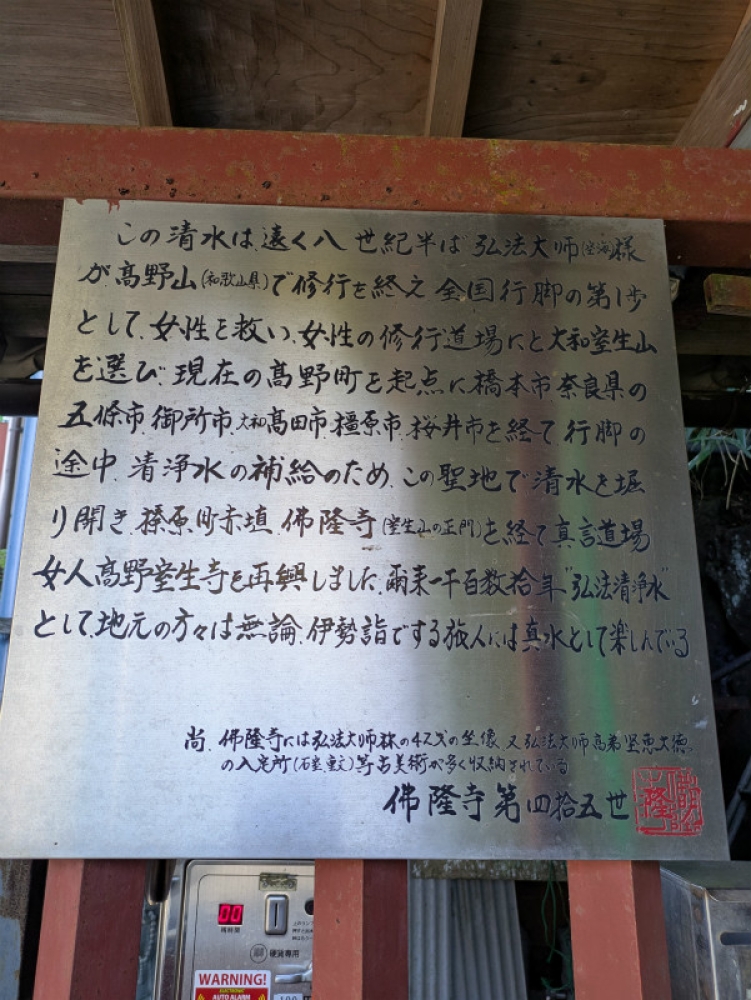 この清水は、遠く八世紀半ば弘法大師(空海)様
が、高野山(和歌山県)で修行を終え全国行脚の第1歩
として、女性を救い、女性の修行道場にと大和室生山
を選び、現在の高野町を起点に橋本市、奈良県の
五條市、御所市、大和高田市、橿原市、桜井市を経て行脚の
途中、清浄水の補給のため、この聖地で清水を堀
り開き、榛原町赤埴、佛隆寺(室生山の正門)を経て真言道場
女人高野室生寺を再興しました、爾来一千百数拾年"弘法清浄水"
として、地元の方々は無論、伊勢詣でする旅人には真水として楽しんでいる
尚、佛隆寺には弘法大師様の42才の坐像、又弘法大師高弟堅恵大徳
の入定所(石室、重文)等古美術が多く収納されている
佛隆寺第四拾五世
00
残時間
硬貨専用
WARNING!
ELECTRONIC
AUTO ALARM